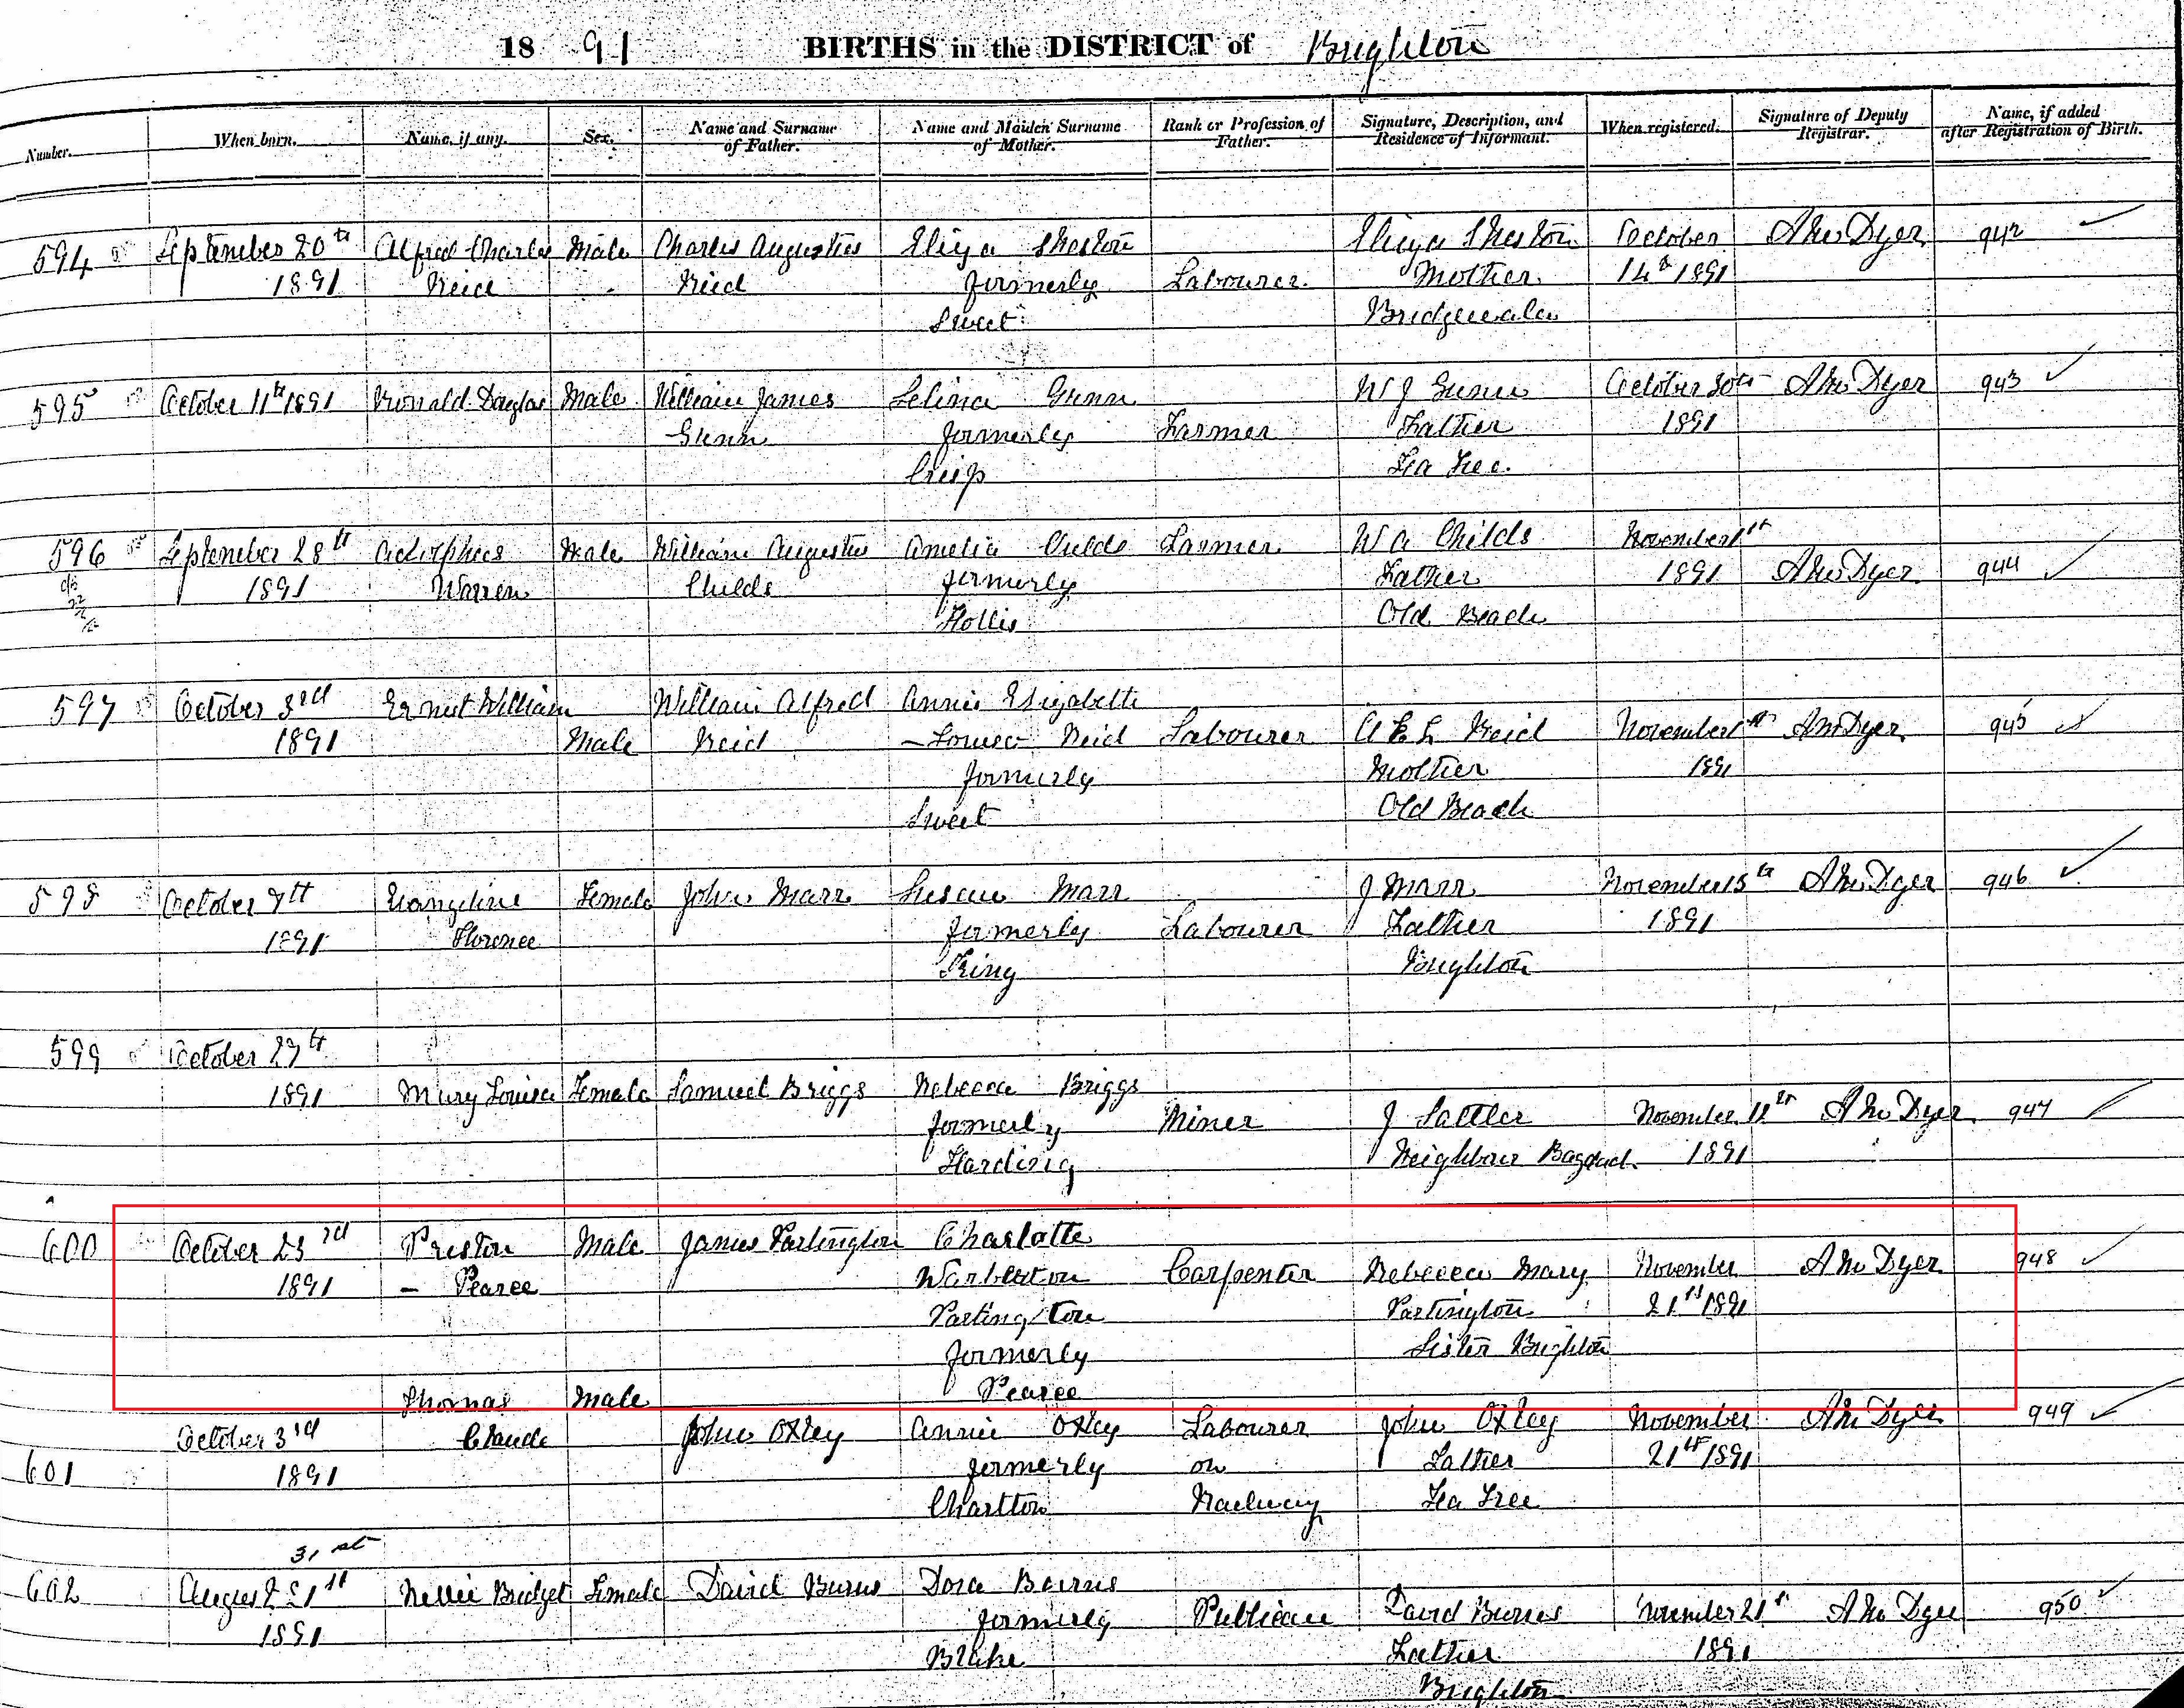 18 91 BIRTHS in the DISTRICT of Brighton
Number. When born. Name, if any. Sex. Name and Surname of Father. Name and Maiden Surname of Mother. Rank or Profession of Father. Signature, Description, and Residence of Informant. When registered. Signature of Deputy Registrar. Name, if added after Registration of Birth.
594 September 20th Alfred Charles Male Charles Augustus Eliza Shoston October Dyer 942
1891 Reid Reid formerly Labourer Mother 14th 1891
Sweet Bridgewater
595 October 11th 1891 Ronald Douglas Male William James Selina Gunn W J Gunn October 30th Dyer 943
Gunn formerly Farmer Father 1891
Crisp Tea Tree
596 September 28th Adolphus Male William Augustus Amelia Childs Farmer W A Childs November
1891 Warren Childs formerly Father 1891 Dyer 944
Hollis Old Beach
597 October 3rd Ernest William William Alfred Annie Elizabeth
1891 Male Reid Louisa Reid Labourer A E L Reid November Dyer 945
formerly Mother 1891
Sweet Old Beach
598 October 7th Evangeline Female John Marr Susan Marr J Marr November Dyer 946
1891 Florence formerly Labourer Father 1891
King Brighton
599 October 27th
1891 Mary Louisa Female Samuel Briggs Rebecca Briggs
formerly Miner J Sattler November Dyer 947
Harding Neighbour Bagdad 1891
600 October 23rd Preston Male James Partington Charlotte
1891 - Pearce Warburton Carpenter Rebecca Mary November Dyer 948
Partington Partington 21st 1891
formerly Sister Brighton
Thomas Male Pearce
October 3rd Claude John Oxley Annie Oxley Labourer John Oxley November Dyer 949
601 1891 formerly on Father 21st 1891
Charlton Railway Tea Tree
31st
602 August 21st Nellie Bridget Female David Burns Dora Burns
1891 formerly Publican David Burns November 21st Dyer 950
Blake Father 1891
Brighton